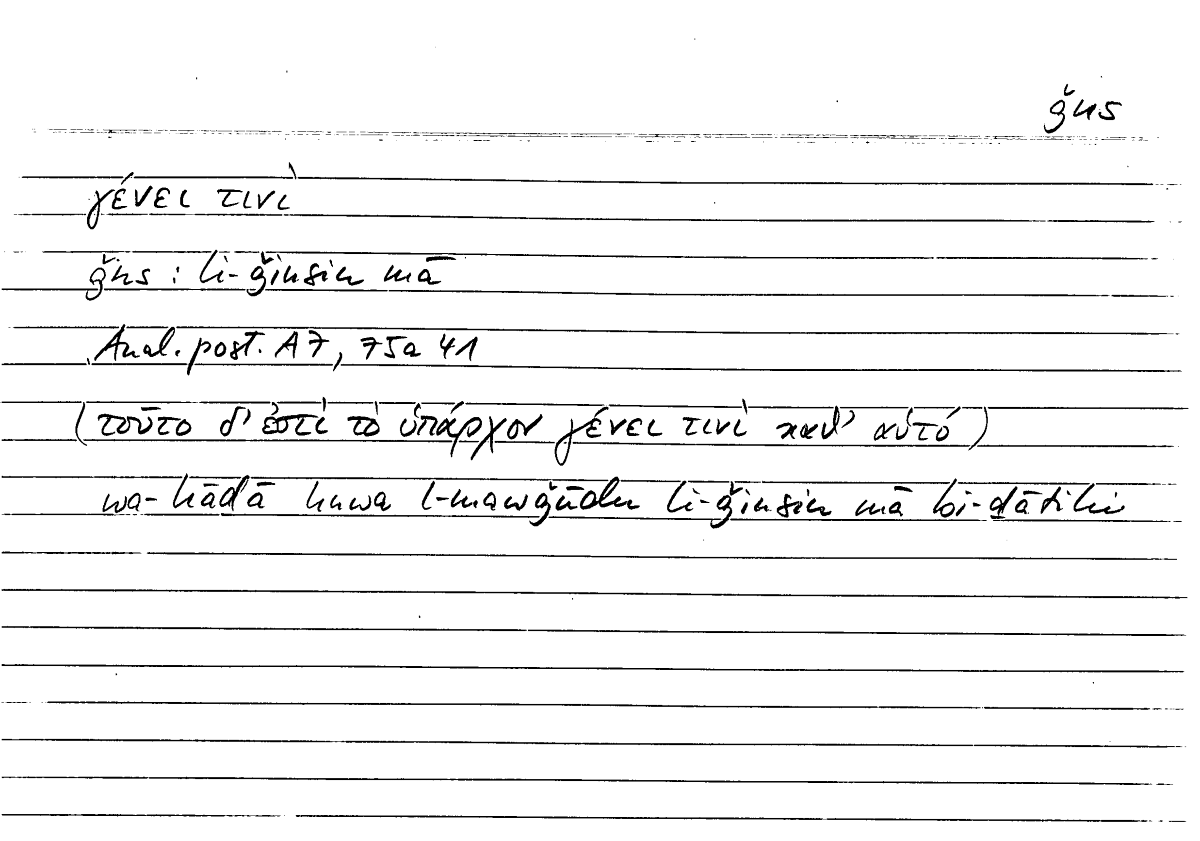 ǧns
γένει τινὶ
ǧns : li-ǧinsin mā
Anal. post. A7, 75a 41
(τοῦτο δ' ἐστὶ τὸ ὑπάρχον γένει τινὶ καθ' αὑτό)
wa-hāḏā huwa l-mawǧūdu li-ǧinsin mā bi-ḏātihi